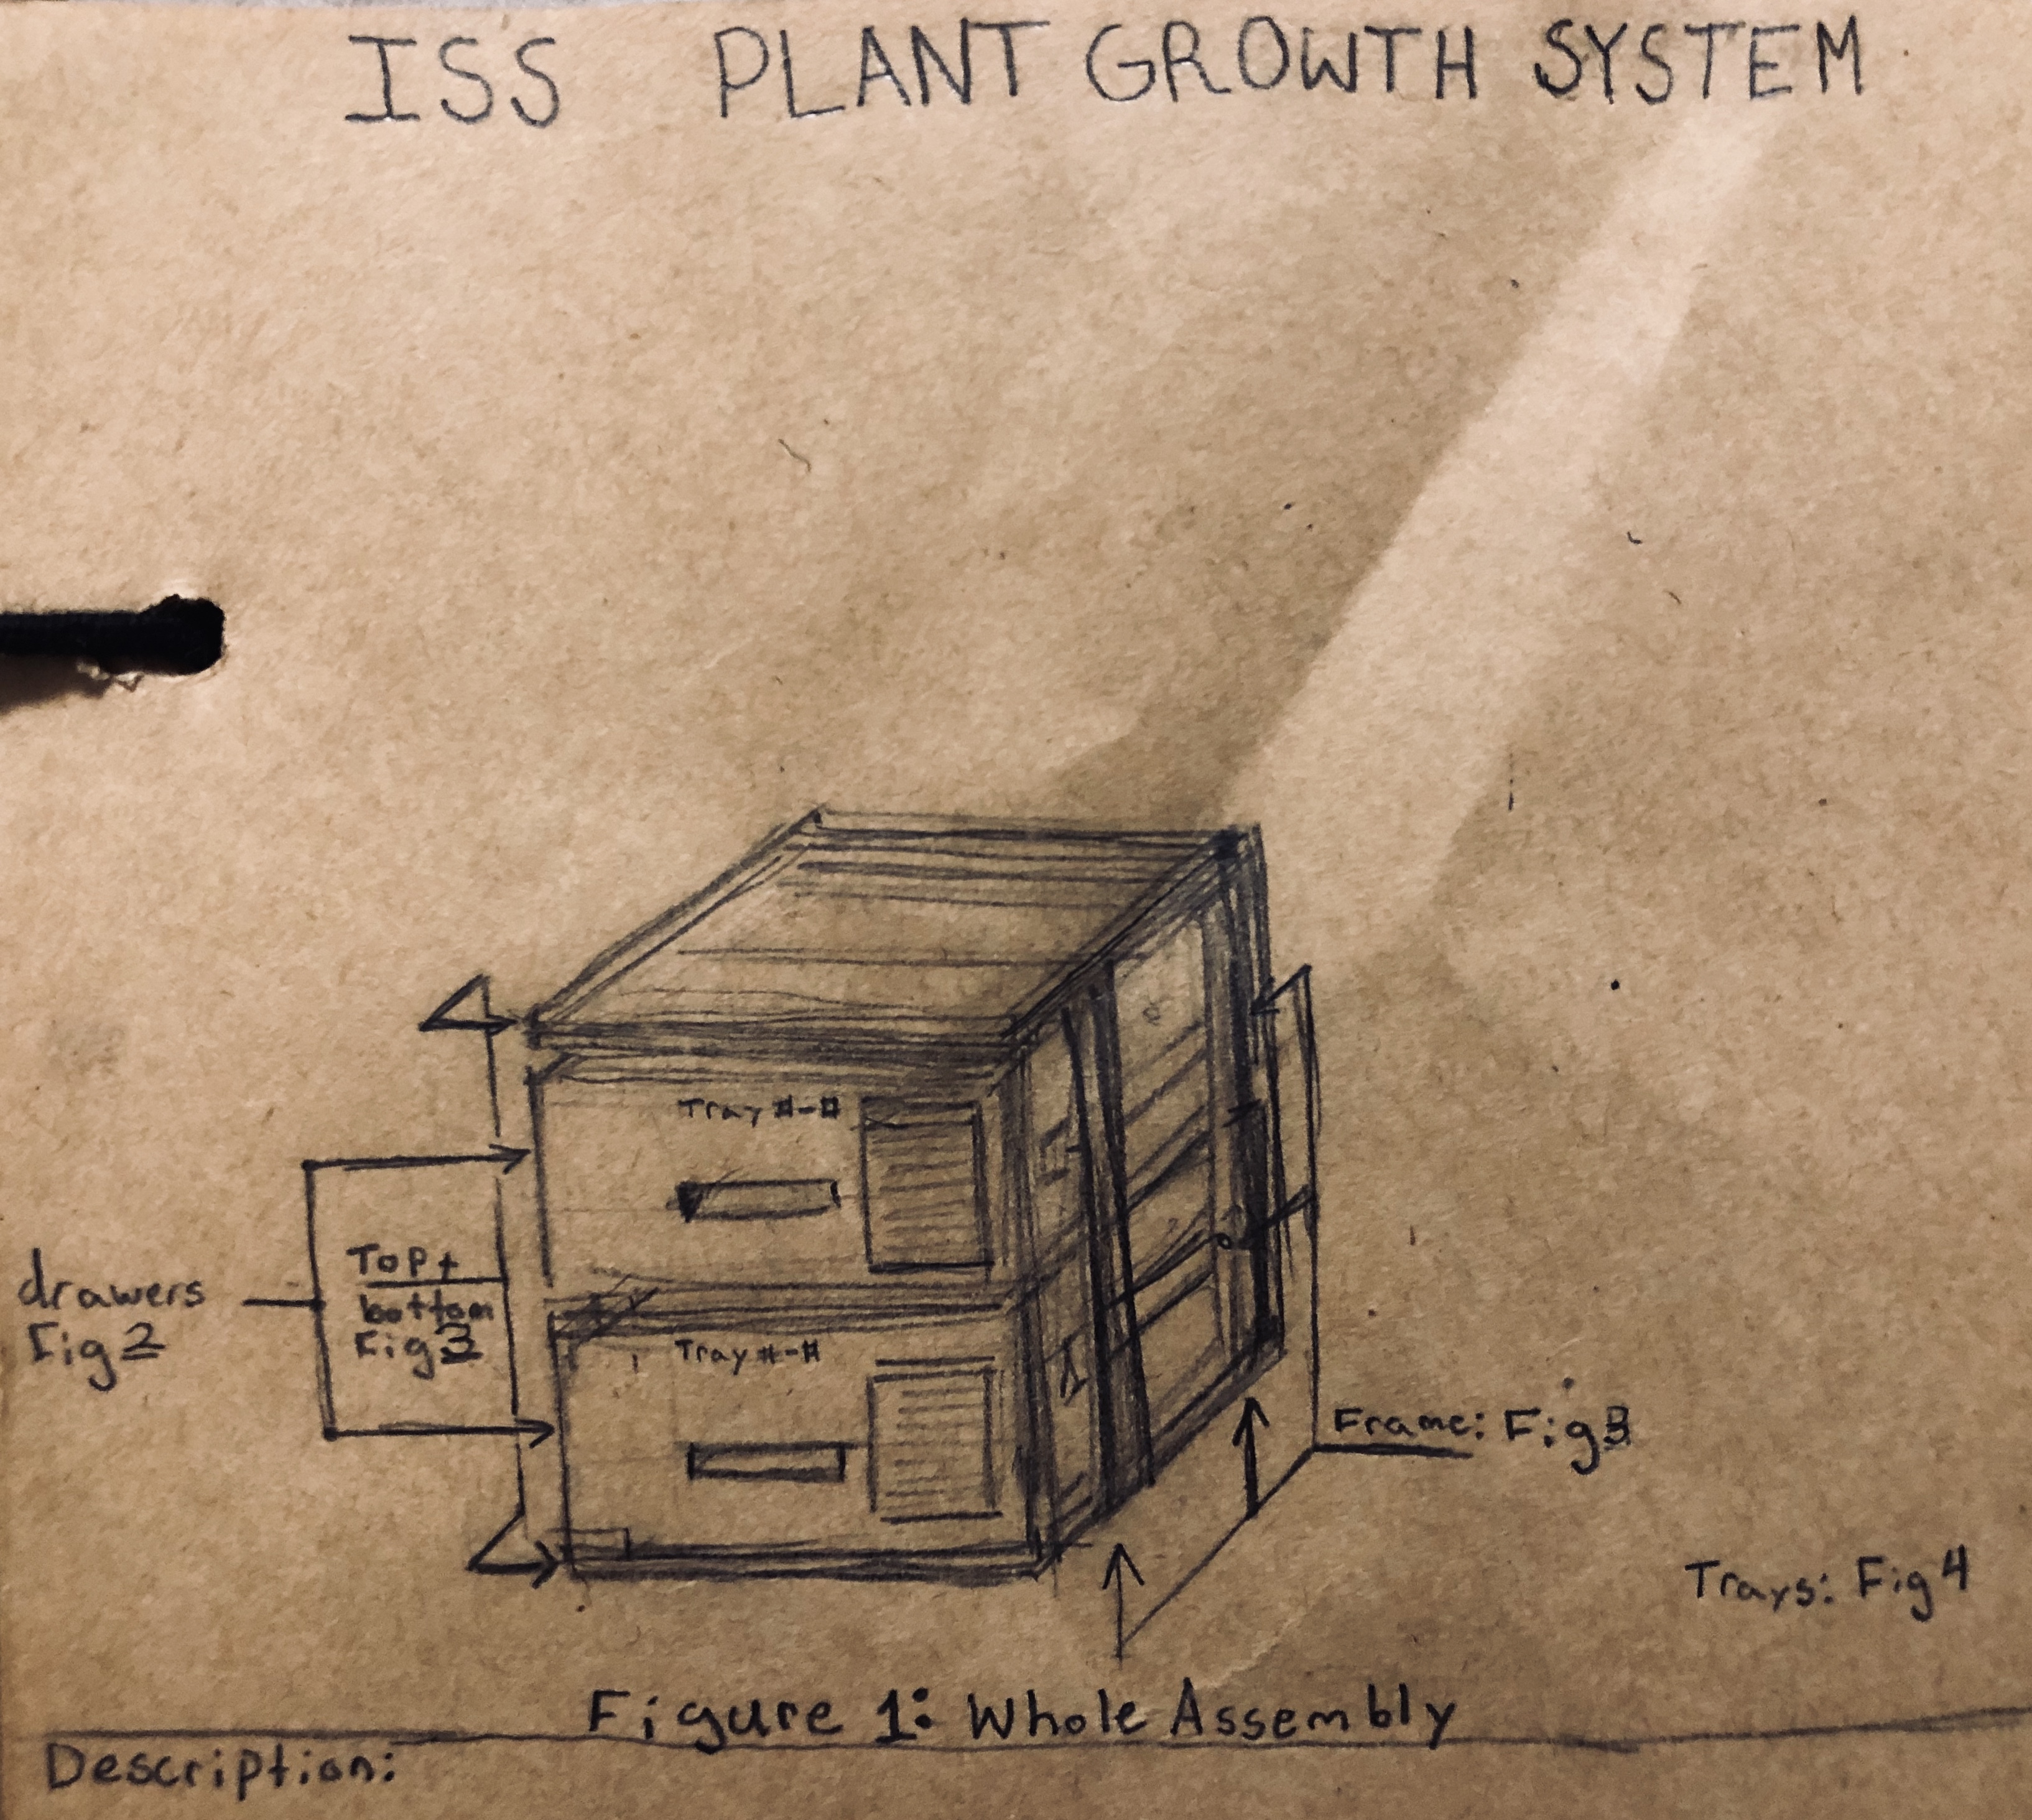 ISS PLANT GROWTH SYSTEM
Tray #-#
drawers
Fig 2
Top +
bottom
Fig 3
Tray #-#
Frame: Fig 3
Trays: Fig 4
Figure 1: Whole Assembly
Description: